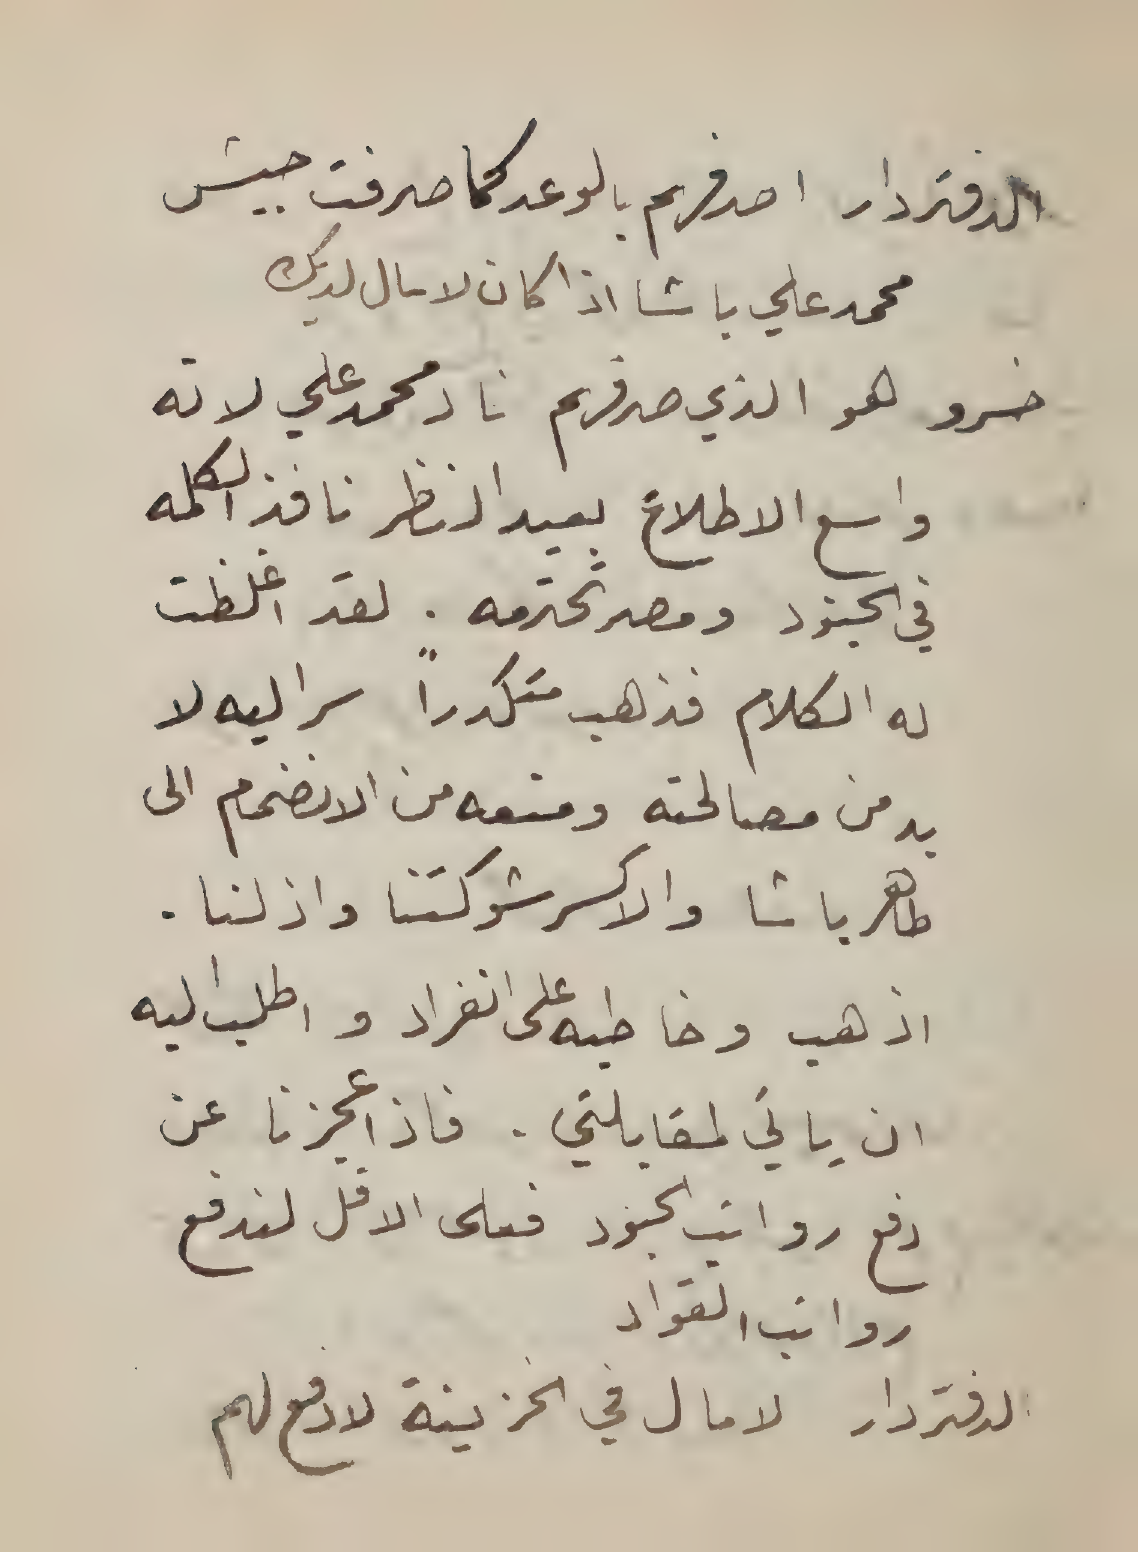 الدفتردار اصرفهم بالوعد كما صرفت جيش
محمد علي باشا اذا كان لا مال لديك
خسرو هو الذي صرفهم ناد محمد علي لانه
واسع الاطلاع بعيد النظر نافذ الكلمه
في الجنود ومصر تحترمه . لقد اغلظت
له الكلام فذهب متكدراً سر اليه لا
بد من مصالحته ومنعه من الانضمام الى
طاهر باشا والا كسر شوكتنا واذلنا .
اذهب وخاطبه على انفراد واطلب اليه
ان ياتي لمقابلتي . فاذا عجزنا عن
دفع رواتب الجنود فعلى الاقل لندفع
رواتب القواد
الدفتردار لا مال في الخزينة لادفع لهم